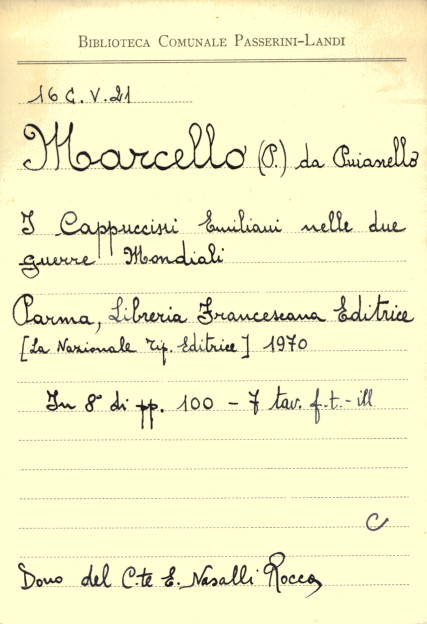 BIBLIOTECA COMUNALE PASSERINI-LANDI
16 C. V. 21
Marcello (P.) da Puianello
I Cappuccini Emiliani nelle due
guerre Mondiali
Parma, Libreria Francescana Editrice
[La Nazionale Tip. Editrice] 1970
In 8° di pp. 100 - 7 tav. f.t.-ill
C
Dono del C.te E. Nasalli Rocca